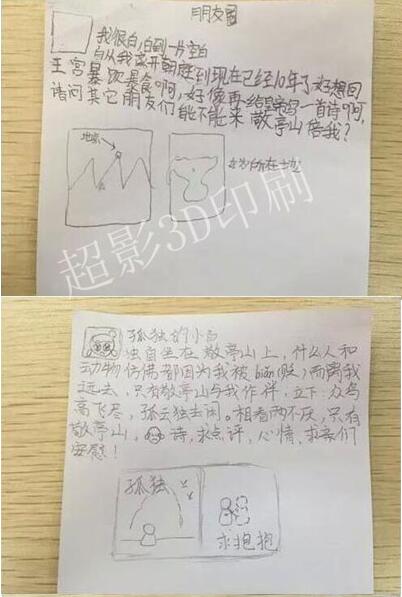 朋友圈
我很白,白到一片空白
自从我离开朝廷到现在已经10年了,好想回
王宫暴饮暴食啊,好像再给皇帝写一首诗啊,
请问其它朋友们能不能来敬亭山陪我?
地标
我所在地
超影3D印刷
孤独的小白
独自坐在敬亭山上,什么人和
动物仿佛都因为我被bian(贬)而离我
远去,只有敬亭山与我作伴,立下:众鸟
高飞尽,孤云独去闲。相看两不厌,只有
敬亭山,诗,求点评,心情,求亲们
安慰!
孤独
求抱抱